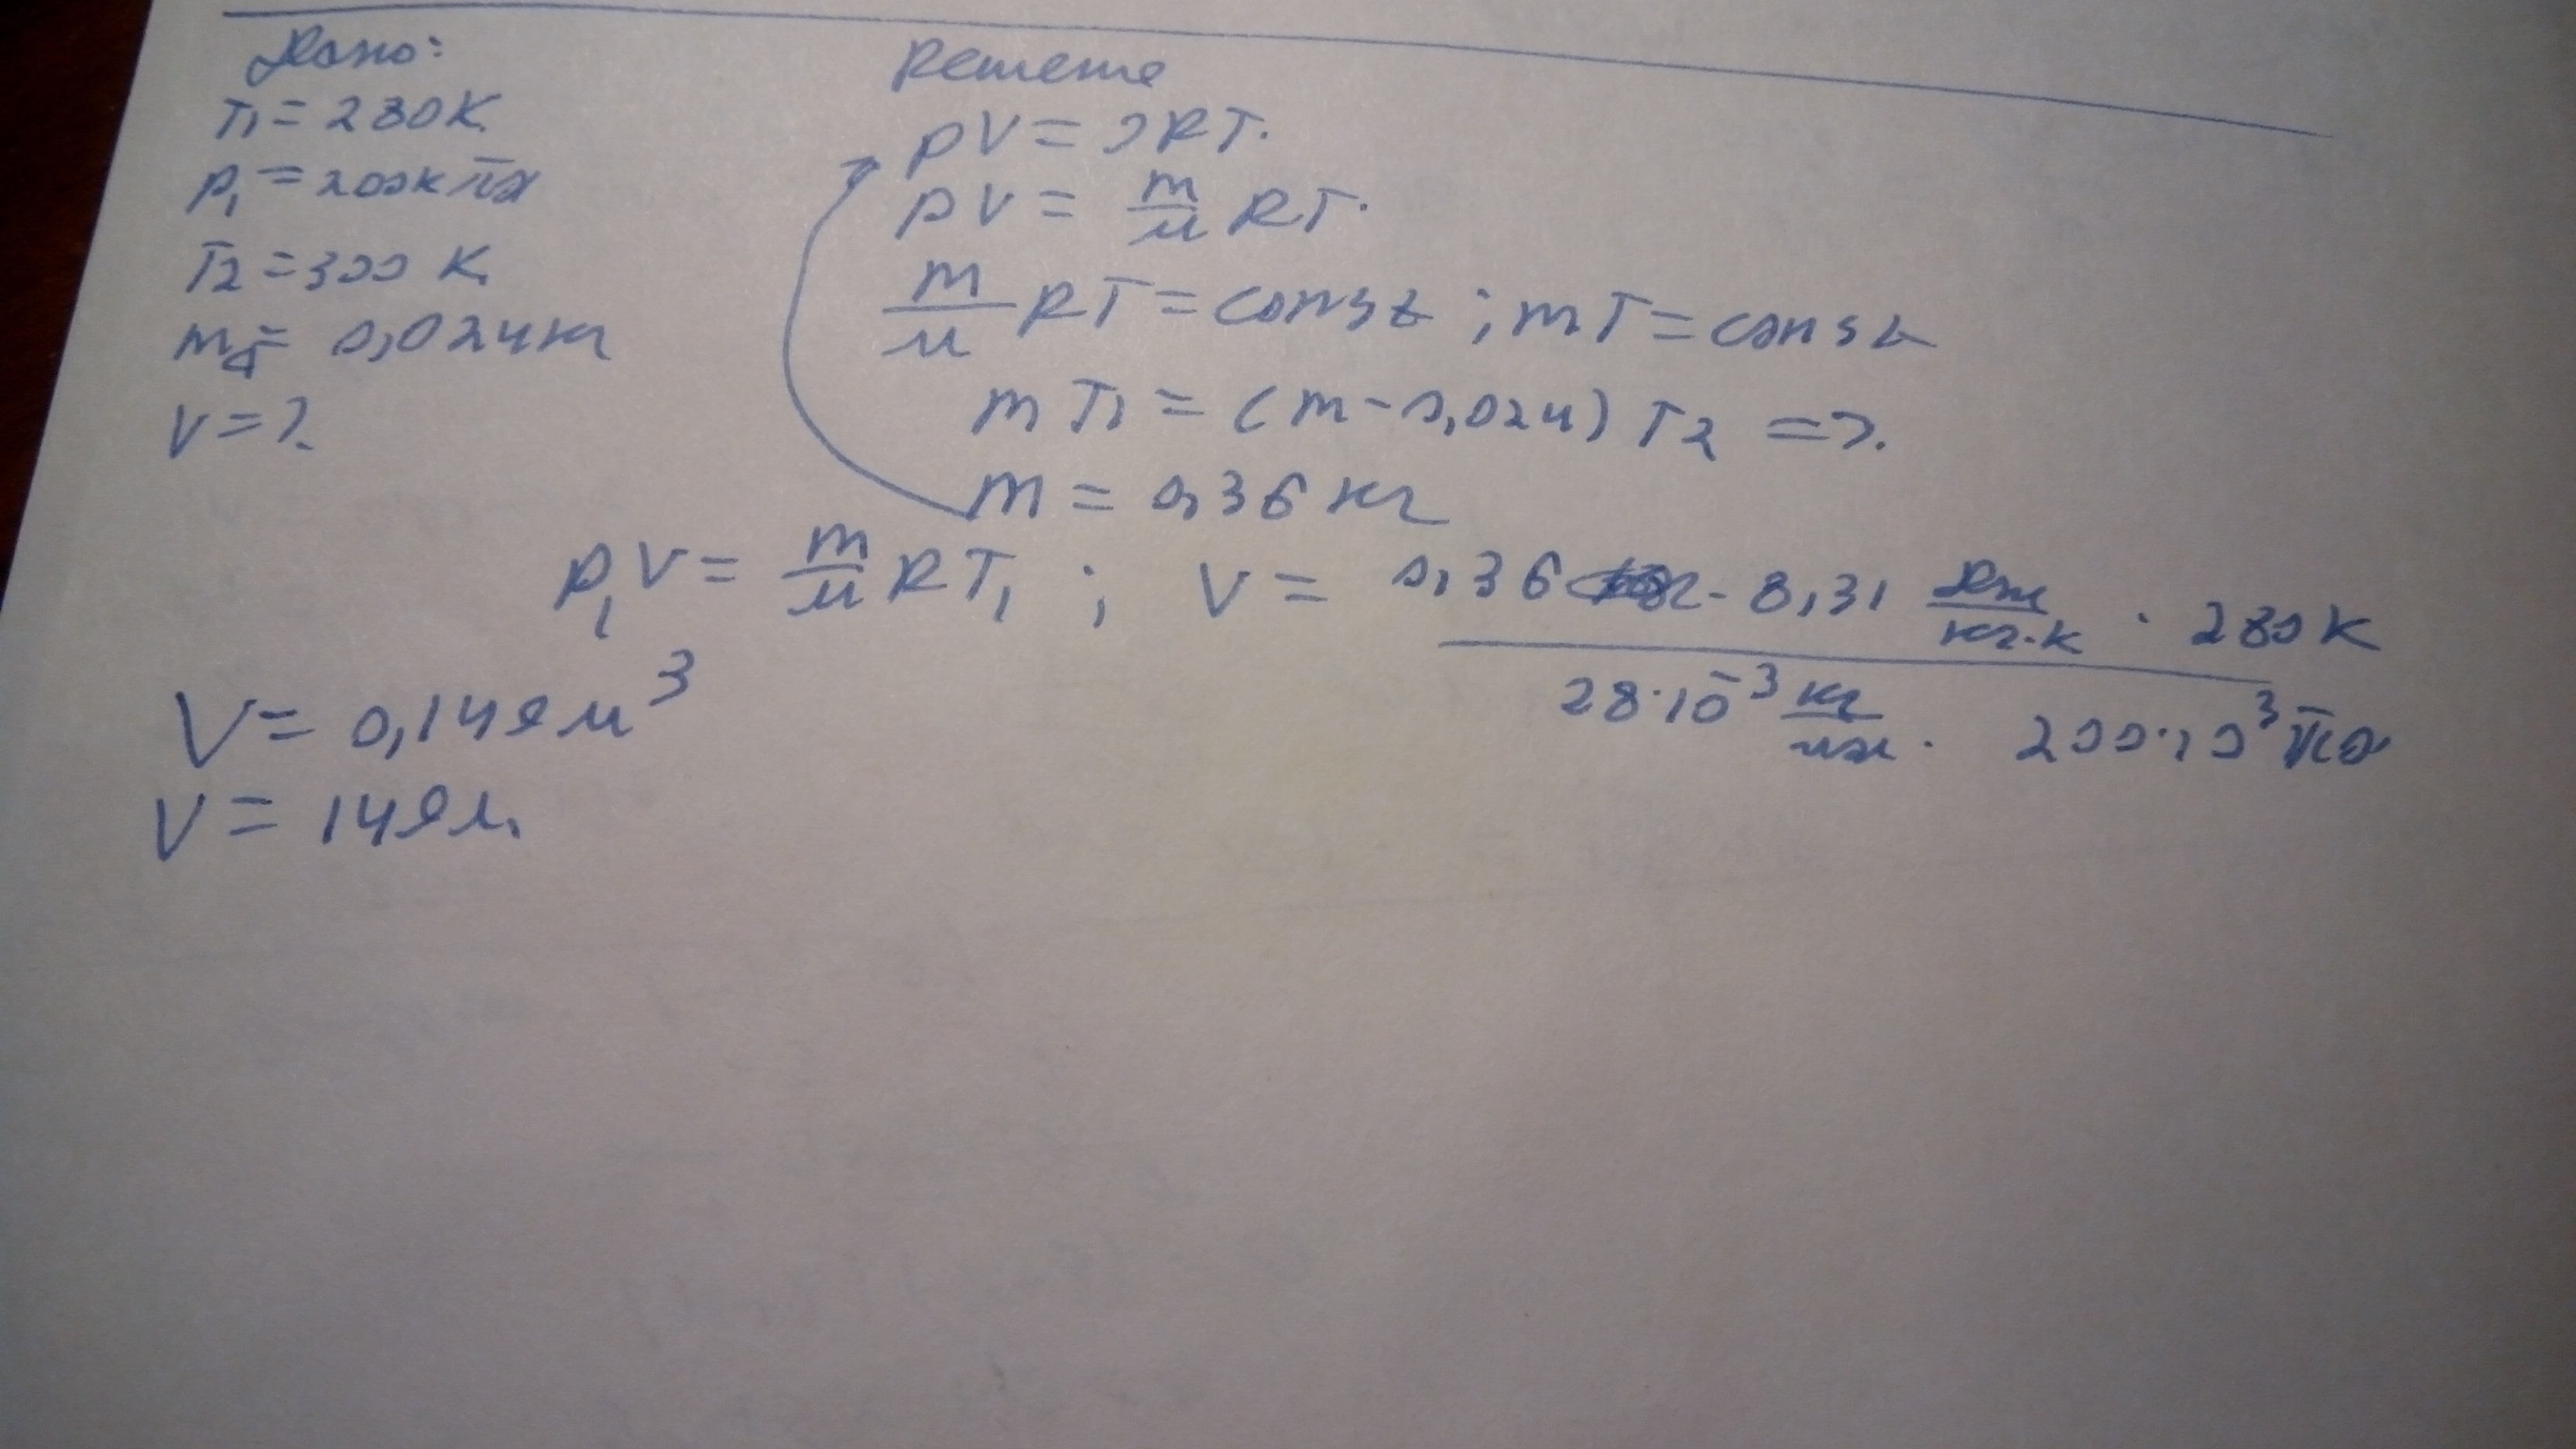 Дано:
T₁ = 280 К
p₁ = 200 кПа
T₂ = 300 К
m = 0,024 кг
V = ?
Решение
pV = νRT.
pV = m/μ RT.
m/μ RT = const ; mT = const
mT₁ = (m - 0,024) T₂ =>.
m = 0,36 кг
p₁V = m/μ RT₁ ; V = 0,36 кг · 8,31 Дж/кг·К · 280 К / 28·10⁻³ кг/моль · 200·10³ Па
V = 0,149 м³
V = 149 л.